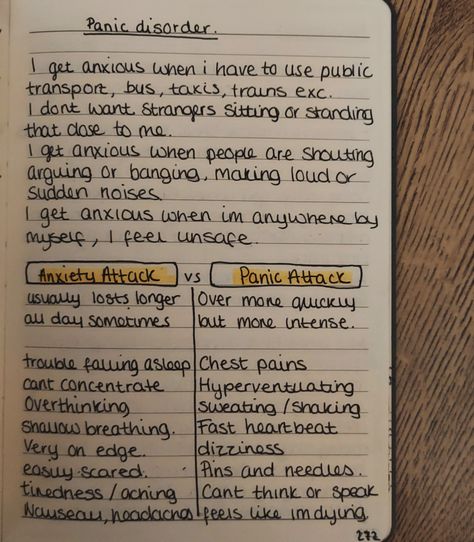 Panic disorder.
I get anxious when i have to use public
transport, bus, taxis, trains exc.
I dont want strangers sitting or standing
that close to me.
I get anxious when people are shouting
arguing or banging, making loud or
sudden noises
I get anxious when im anywhere by
myself, I feel unsafe.
Anxiety Attack vs Panic Attack
usually lasts longer Over more quickly
all day sometimes but more intense.
trouble falling asleep Chest pains
cant concentrate Hyperventilating
Overthinking sweating / shaking
shallow breathing. Fast heartbeat
Very on edge. dizziness
easily scared. Pins and needles.
tiredness / aching Cant think or speak
Nauseau, headaches feels like im dying
272